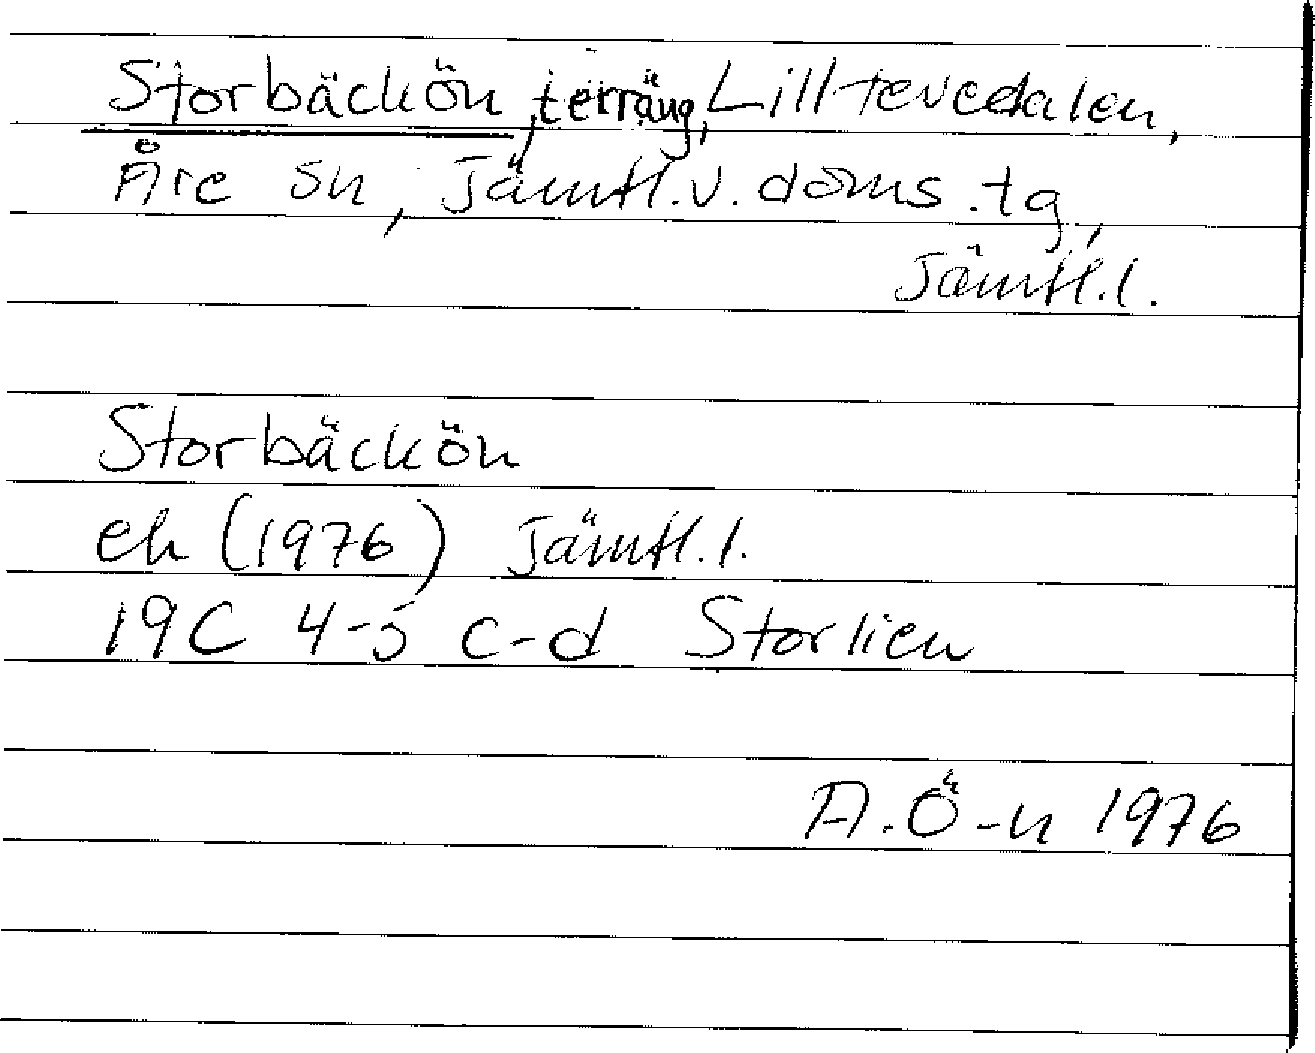 Storbäckön, terräng, Lilltevedalen,
Åre sn, Jämtl.v. doms.tg,
Jämtl.l.
Storbäckön
ek (1976) Jämtl.l.
19C 4-5 c-d Storlien
A.Ö-n 1976